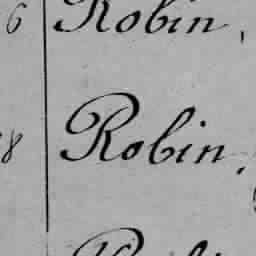 6 Robin,
8 Robin,